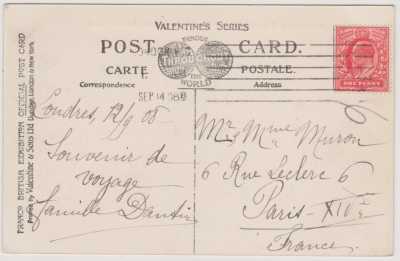 VALENTINE'S SERIES
FAMOUS
POST CARD.
CARTE POSTALE.
THROUGHOUT
THE
WORLD
Correspondence
Address
SEP 14 08
ONE PENNY
FRANCO BRITISH EXHIBITION OFFICIAL POST CARD
Valentine & Sons Ltd Dundee, London & New York
Londres, 12/9 08
Souvenir de
voyage
Famille Dantin
Mr Mme Muron
6 Rue Leclerc 6
Paris - XIVe
France